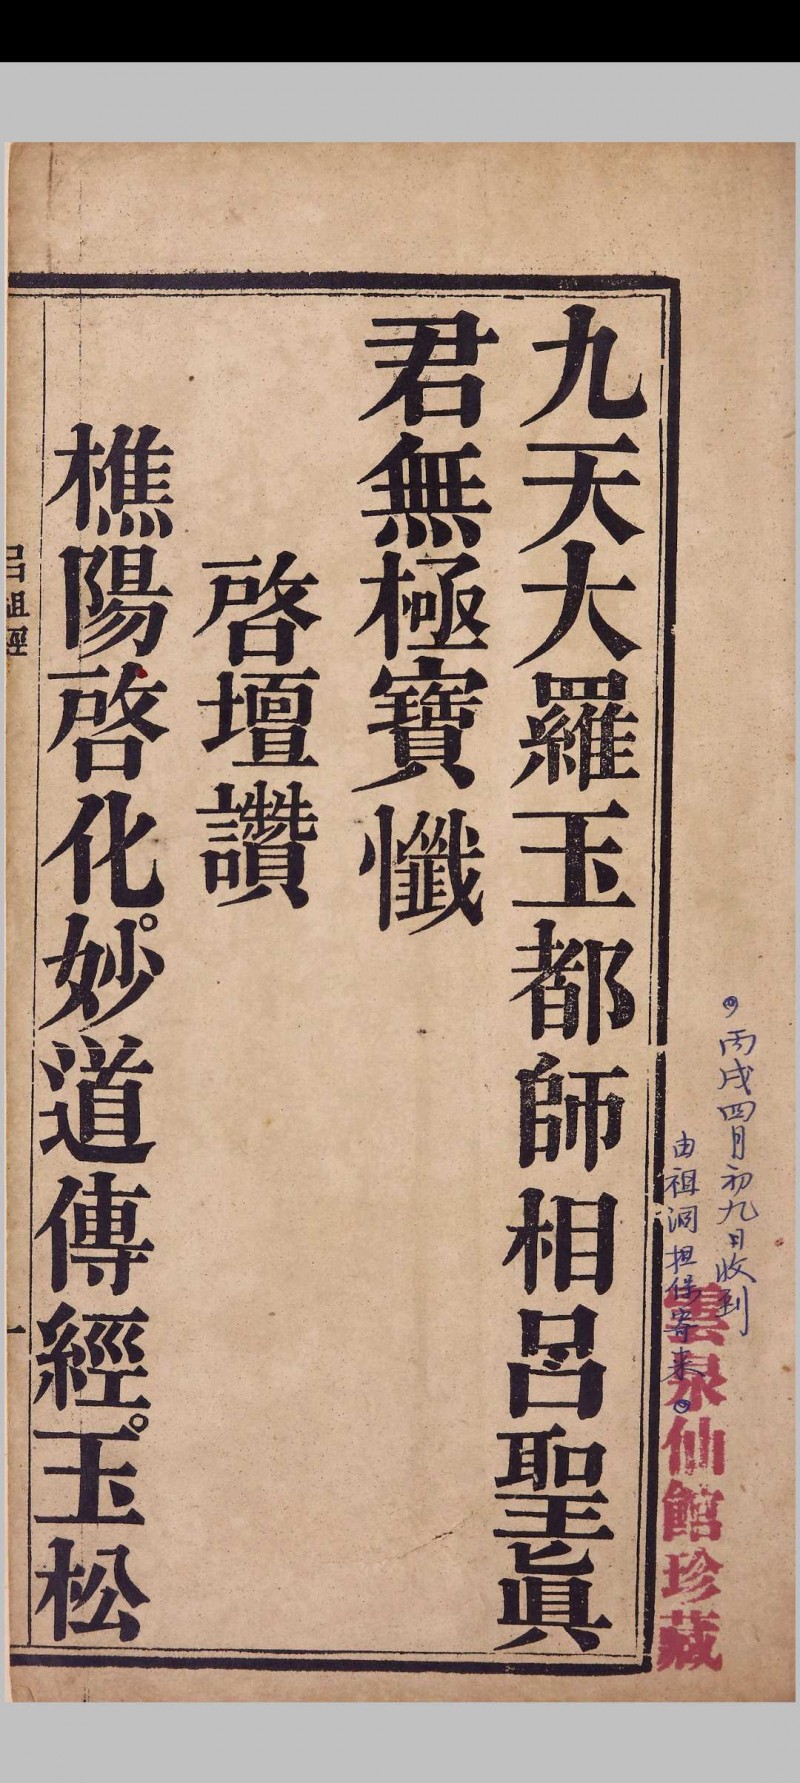 丙戌四月初九日收到
由祖洞担保寄来
雲泉仙館珍藏
九天大羅玉都師相呂聖眞
君無極寶懺
啓壇讚
樵陽啓化。妙道傳經。玉松
呂祖經
一